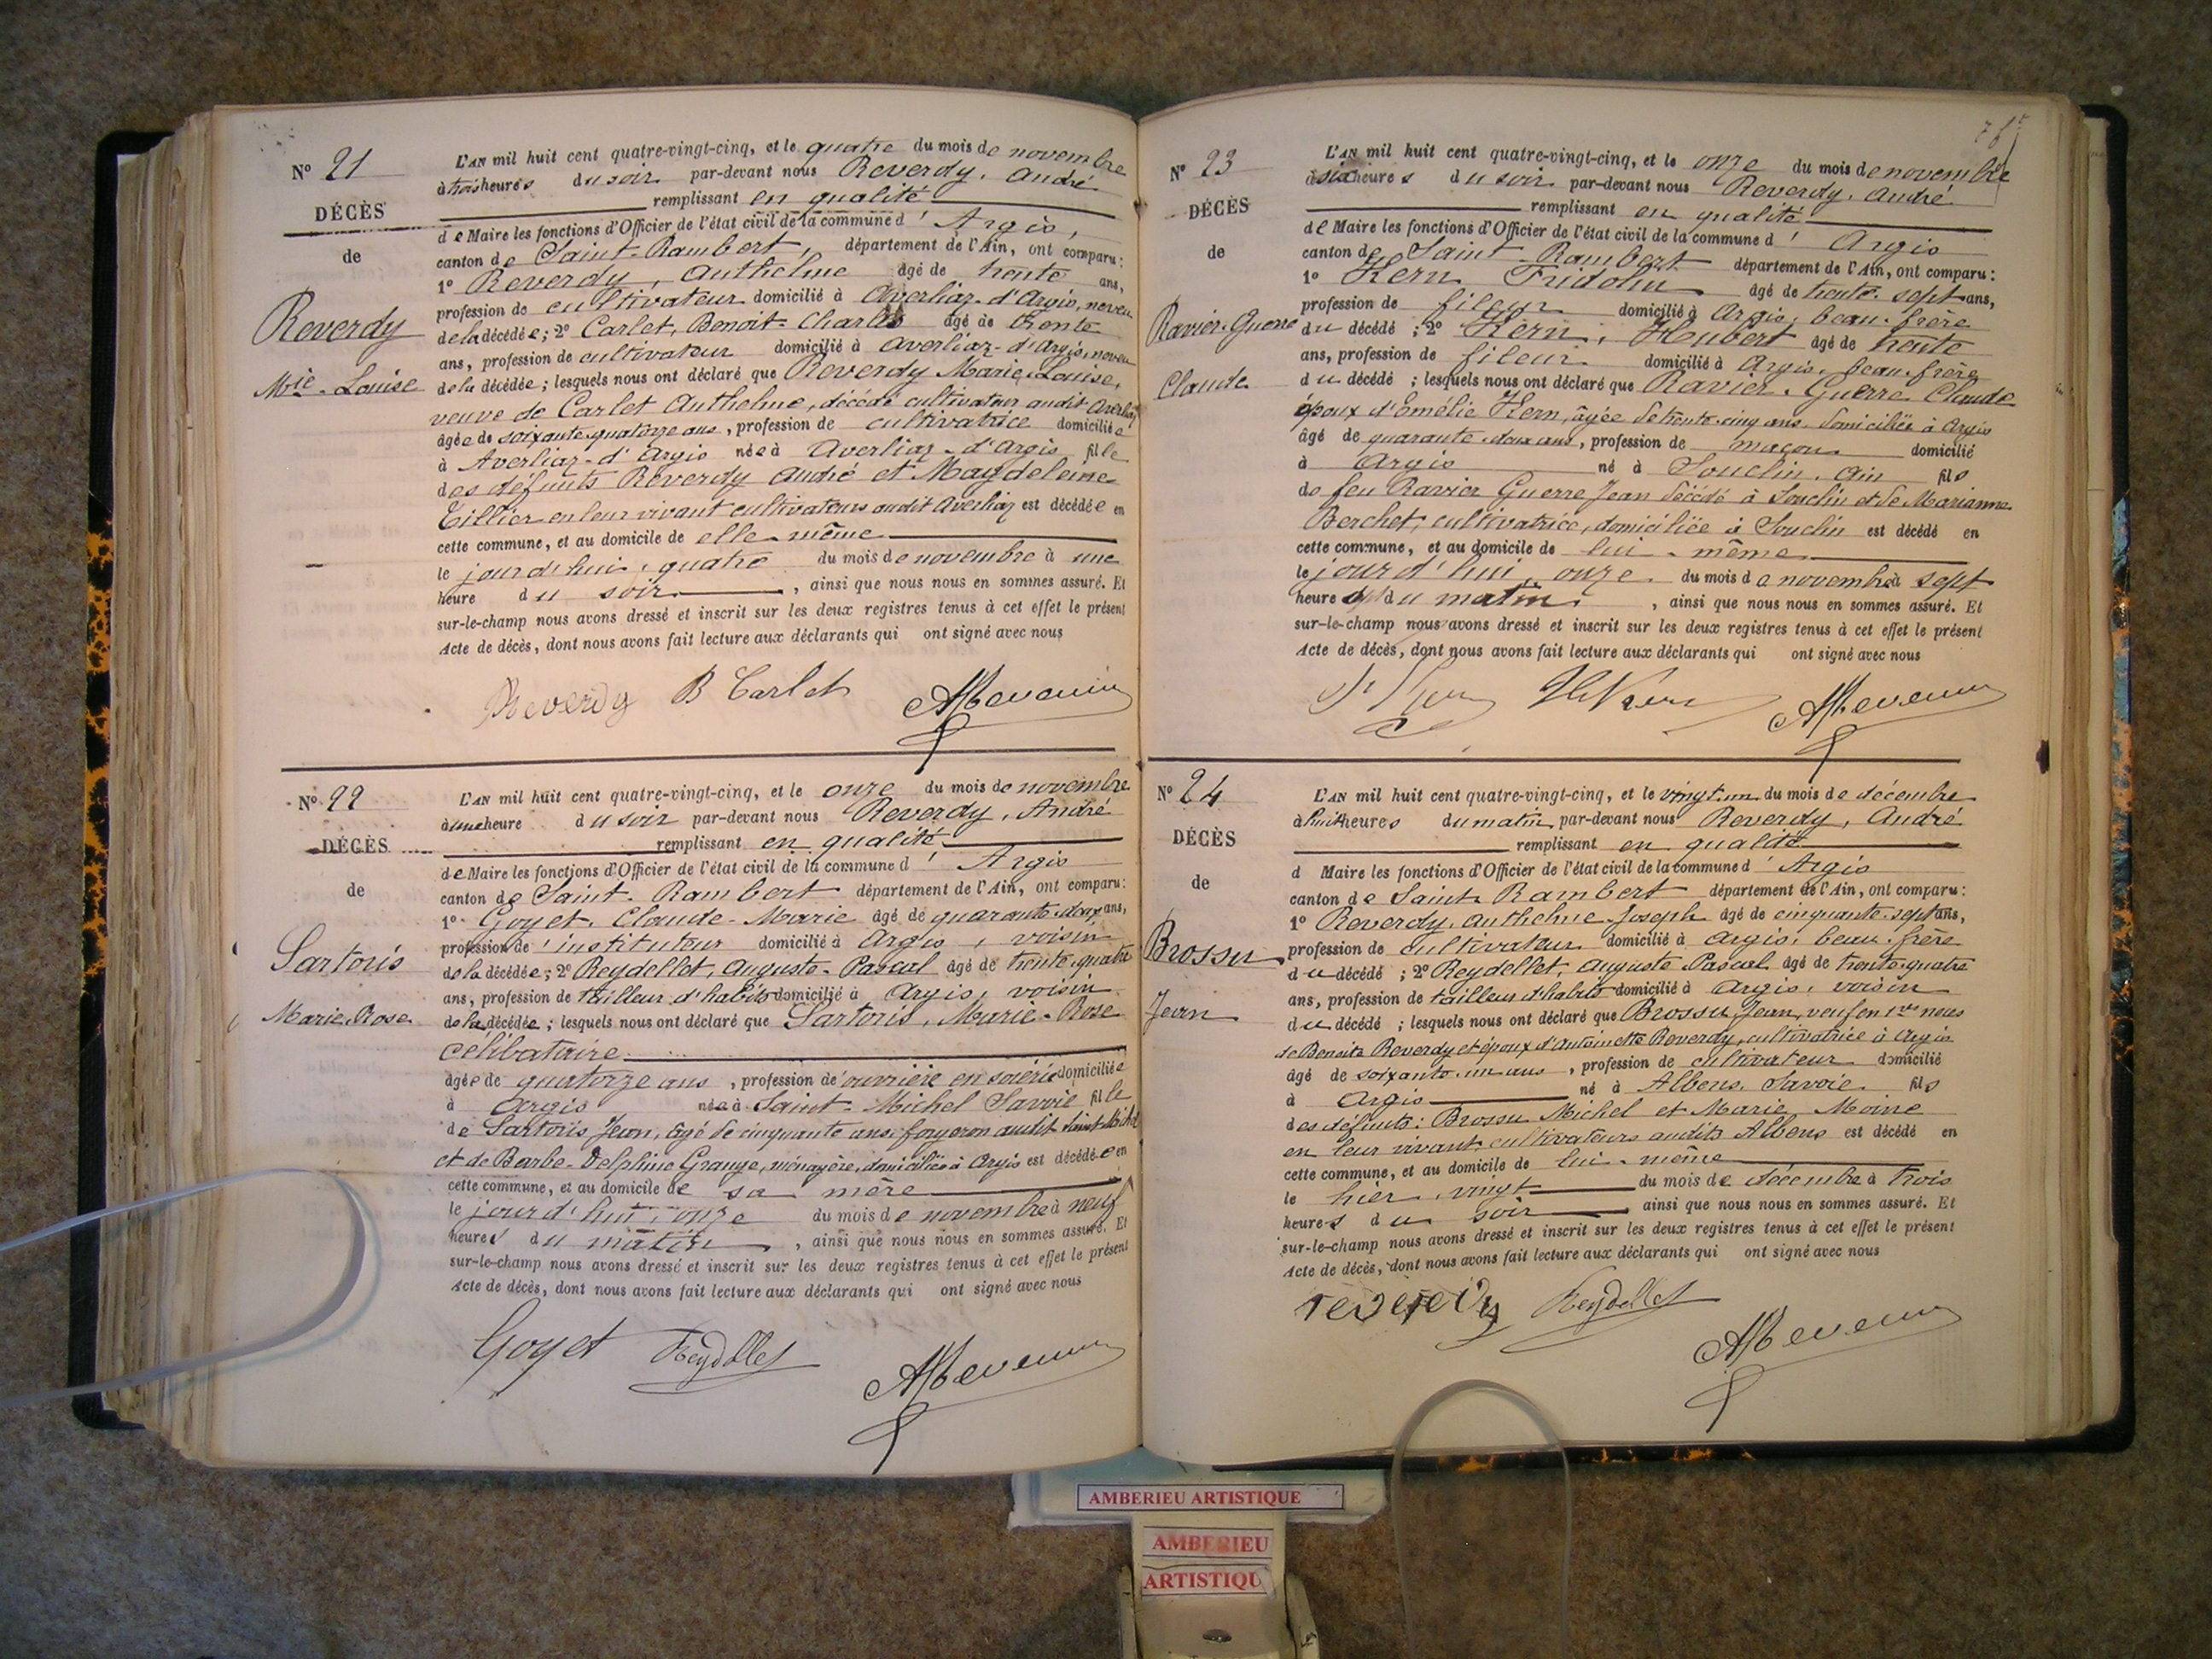 N° 21
DÉCÈS
de
Reverdy
Mrie-Louise
L'AN mil huit cent quatre-vingt-cinq, et le quatre du mois de novembre
à trois heures du soir par-devant nous Reverdy, André
remplissant en qualité
de Maire les fonctions d'Officier de l'état civil de la commune d'Argis,
canton de Saint-Rambert, département de l'Ain, ont comparu:
1° Reverdy, Anthelme âgé de trente ans,
profession de cultivateur domicilié à Averliaz-d'Argis, neveu
de la décédée; 2° Carlet, Benoit-Charles âgé de trente
ans, profession de cultivateur domicilié à Averliaz-d'Argis, neveu
de la décédée; lesquels nous ont déclaré que Reverdy Marie Louise,
veuve de Carlet Anthelme, décédé cultivateur audit Averliaz
âgée de soixante-quatorze ans, profession de cultivatrice domiciliée
à Averliaz-d'Argis née à Averliaz-d'Argis fille
des défunts Reverdy André et Magdeleine
Tillier en leur vivant cultivateurs audit Averliaz est décédée en
cette commune, et au domicile de elle-même
le jourd'hui, quatre du mois de novembre à une
heure du soir, ainsi que nous nous en sommes assuré. Et
sur-le-champ nous avons dressé et inscrit sur les deux registres tenus à cet effet le présent
Acte de décès, dont nous avons fait lecture aux déclarants qui ont signé avec nous
Reverdy B Carlet
N° 22
DÉCÈS
de
Sartoris
Marie-Rose
L'AN mil huit cent quatre-vingt-cinq, et le onze du mois de novembre
à une heure du soir par-devant nous Reverdy, André
remplissant en qualité
de Maire les fonctions d'Officier de l'état civil de la commune d'Argis
canton de Saint-Rambert département de l'Ain, ont comparu:
1° Goyet, Claude-Marie âgé de quarante-deux ans,
profession de instituteur domicilié à Argis, voisin
de la décédée; 2° Reydellet, Auguste-Pascal âgé de trente-quatre
ans, profession de tailleur d'habits domicilié à Argis, voisin
de la décédée; lesquels nous ont déclaré que Sartoris, Marie-Rose
célibataire
âgée de quatorze ans, profession de ouvrière en soierie domiciliée
à Argis née à Saint-Michel Savoie fille
de Sartoris Jean, âgé de cinquante ans, forgeron audit Saint-Michel
et de Barbe-Delphine Grange, ménagère, domiciliée à Argis est décédée en
cette commune, et au domicile de sa mère
le jourd'hui, onze du mois de novembre à neuf
heures du matin, ainsi que nous nous en sommes assuré. Et
sur-le-champ nous avons dressé et inscrit sur les deux registres tenus à cet effet le présent
Acte de décès, dont nous avons fait lecture aux déclarants qui ont signé avec nous
Goyet Reydellet
N° 23
DÉCÈS
de
Ravier-Guerre
Claude
L'AN mil huit cent quatre-vingt-cinq, et le onze du mois de novembre
à six heures du soir par-devant nous Reverdy, André
remplissant en qualité
de Maire les fonctions d'Officier de l'état civil de la commune d'Argis
canton de Saint-Rambert département de l'Ain, ont comparu:
1° Kern Fridolin âgé de trente-sept ans,
profession de fileur domicilié à Argis, beau-frère
du décédé; 2° Kern, Heubert âgé de trente
ans, profession de fileur domicilié à Argis, beau-frère
du décédé; lesquels nous ont déclaré que Ravier-Guerre Claude
époux d'Emélie Kern, âgée de trente-cinq ans, domiciliée à Argis
âgé de quarante-deux ans, profession de maçon domicilié
à Argis né à Souclin, Ain fils
de feu Ravier Guerre Jean décédé à Souclin et de Marianne
Berchet, cultivatrice, domiciliée à Souclin est décédé en
cette commune, et au domicile de lui-même
le jourd'hui, onze du mois de novembre à sept
heures du matin, ainsi que nous nous en sommes assuré. Et
sur-le-champ nous avons dressé et inscrit sur les deux registres tenus à cet effet le présent
Acte de décès, dont nous avons fait lecture aux déclarants qui ont signé avec nous
N° 24
DÉCÈS
de
Brossu
Jean
L'AN mil huit cent quatre-vingt-cinq, et le vingt-un du mois de décembre
à huit heures du matin par-devant nous Reverdy, André
remplissant en qualité
d Maire les fonctions d'Officier de l'état civil de la commune d'Argis
canton de Saint-Rambert département de l'Ain, ont comparu:
1° Reverdy, Anthelme-Joseph âgé de cinquante-sept ans,
profession de cultivateur domicilié à Argis, beau-frère
du décédé; 2° Reydellet, Auguste-Pascal âgé de trente-quatre
ans, profession de tailleur d'habits domicilié à Argis, voisin
du décédé; lesquels nous ont déclaré que Brossu, Jean, veuf en 1res noces
de Benoite Reverdy et époux d'Antoinette Reverdy, cultivatrice à Argis
âgé de soixante-un ans, profession de cultivateur domicilié
à Argis né à Albens, Savoie. fils
des défunts: Brossu Michel et Marie Moine
en leur vivant cultivateurs audits Albens est décédé en
cette commune, et au domicile de lui-même
le hier, vingt du mois de décembre à trois
heures du soir ainsi que nous nous en sommes assuré. Et
sur-le-champ nous avons dressé et inscrit sur les deux registres tenus à cet effet le présent
Acte de décès, dont nous avons fait lecture aux déclarants qui ont signé avec nous
reverdy Reydellet
AMBERIEU ARTISTIQUE
AMBERIEU
ARTISTIQU